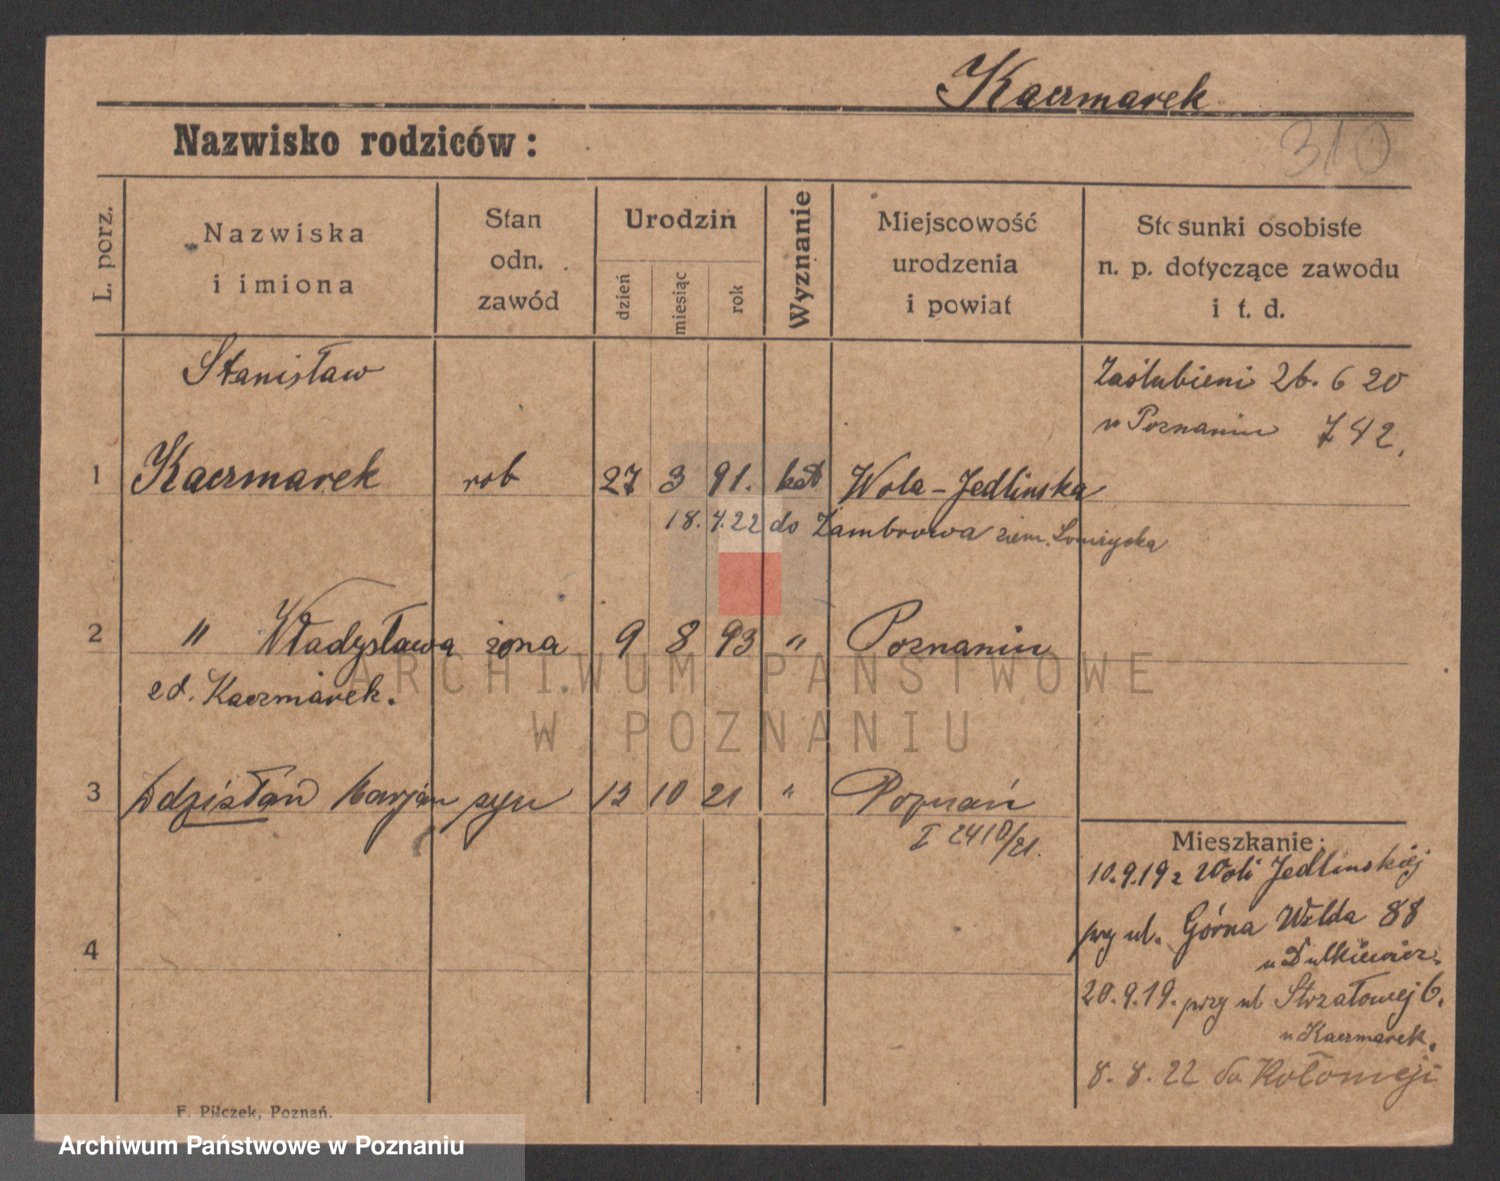 Kaczmarek
310
Nazwisko rodziców:
L. porz.
Nazwiska i imiona
Stan odn. zawód
Urodzin
dzień
miesiąc
rok
Wyznanie
Miejscowość urodzenia i powiat
Stosunki osobiste n. p. dotyczące zawodu i t. d.
Stanisław
Zaślubieni 26. 6 20
w Poznaniu 742.
1 Kaczmarek rob 27 3 91. kat Wola-Jedlinska
18. 7. 22 do Zambrowa ziem. Łomżycka
2 " Władysława żona 9 8 93 " Poznaniu
zd. Kaczmarek.
3 Zdzisław Marjan syn 13 10 21 " Poznań
I 2410/21.
Mieszkanie:
10.9.19 z Woli Jedlinskiej
przy ul. Górna Wilda 88
u Dulkiewicz.
4
20.9.19. przy ul Strzałowej 6.
u Kaczmarek.
8. 8. 22 do Kołomeji
F. Pilczek, Poznań.
ARCHIWUM PAŃSTWOWE
W POZNANIU
Archiwum Państwowe w Poznaniu